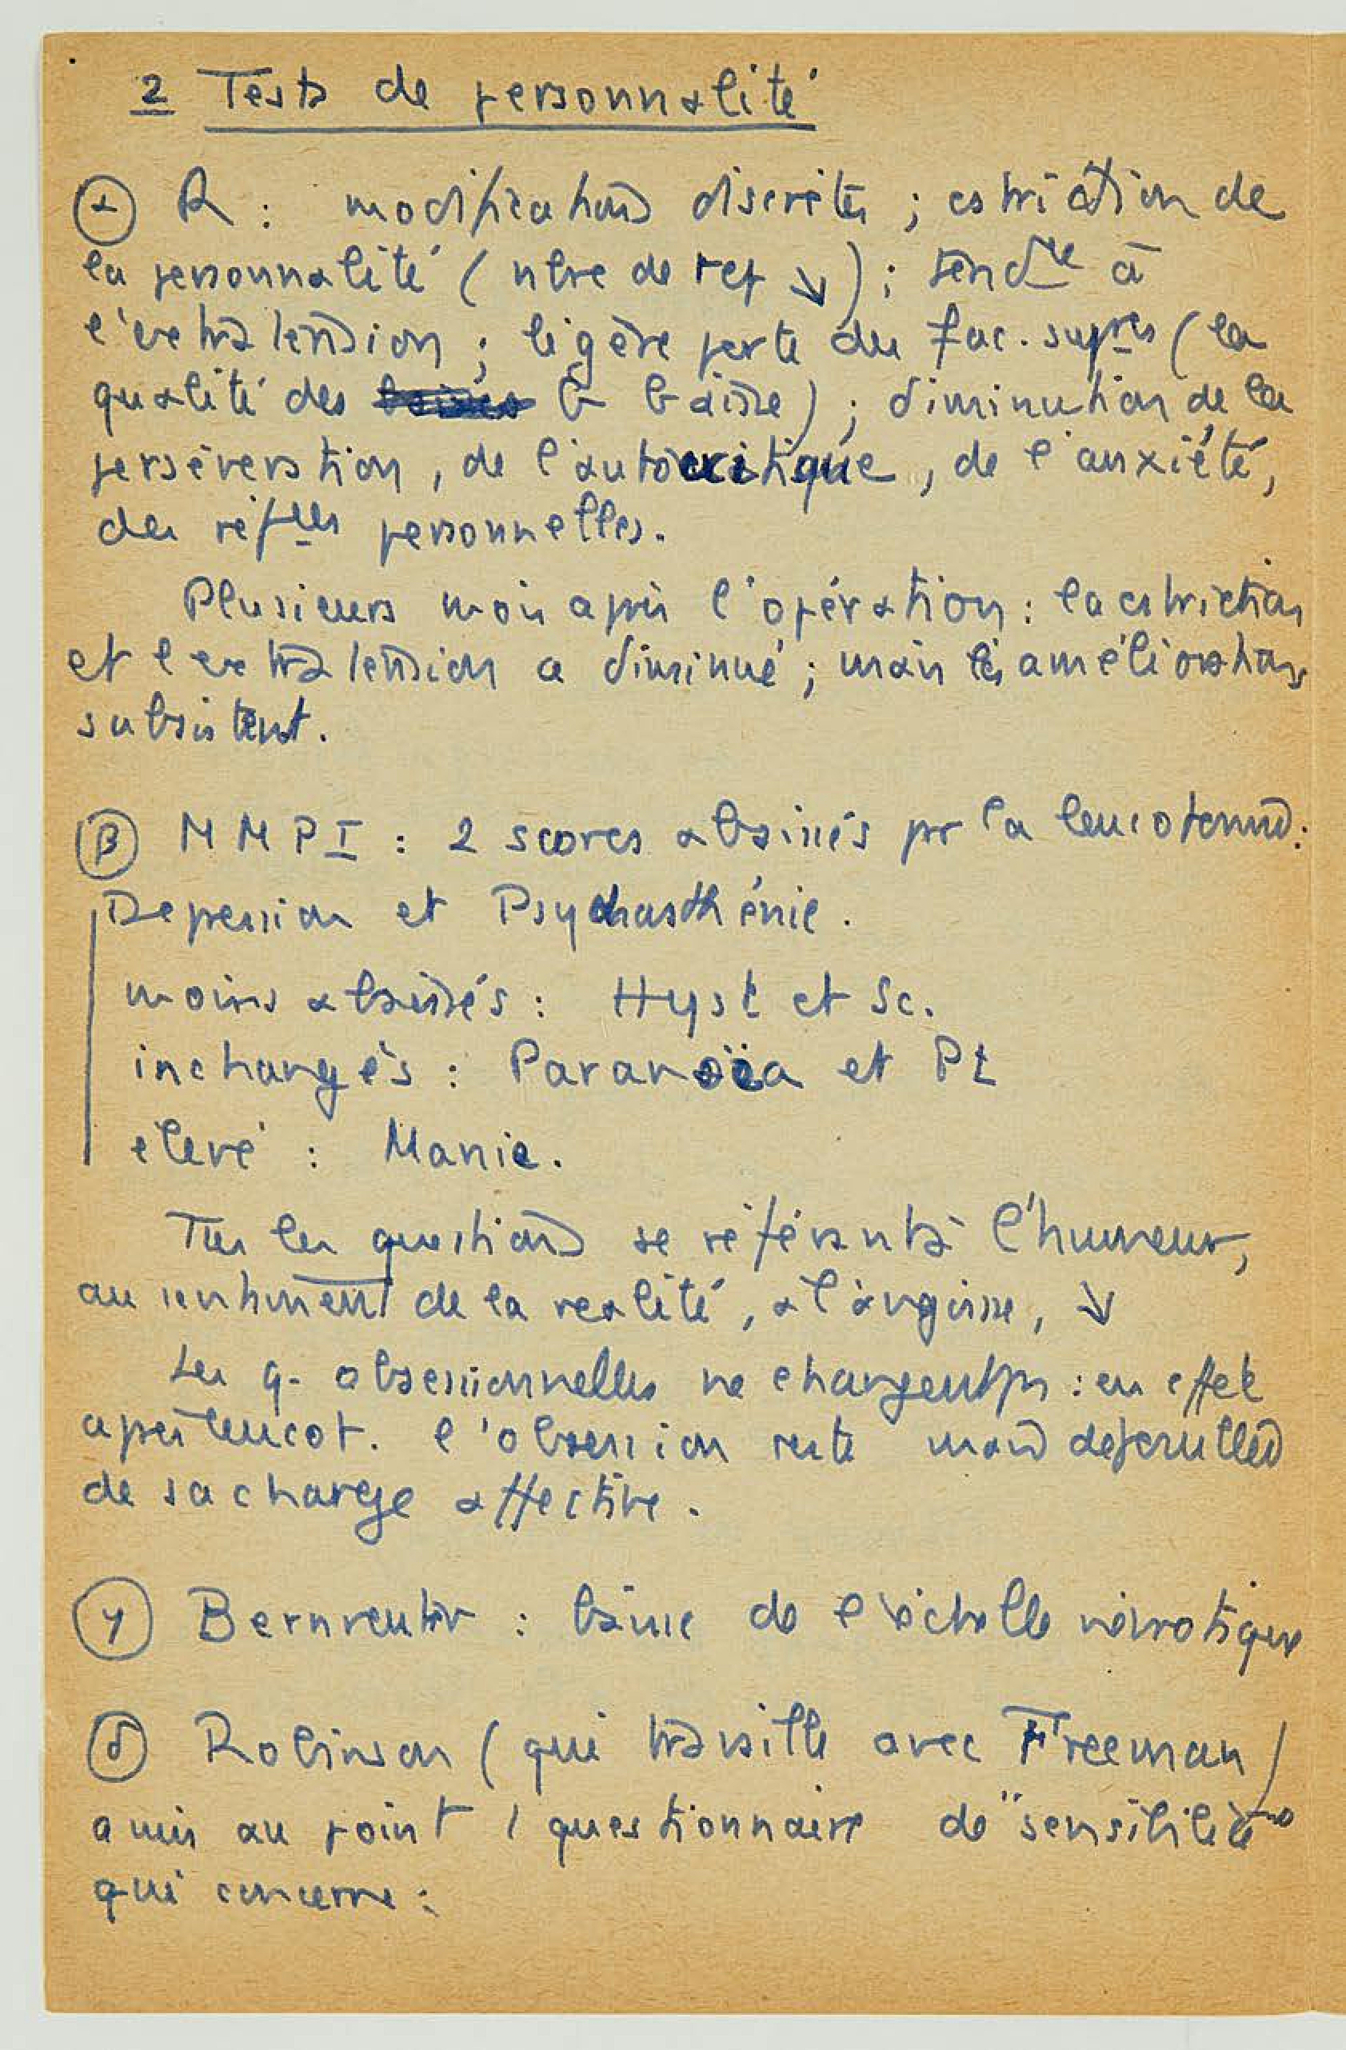 2 Tests de personnalité
α R : modifications discrètes ; cstriction de
la personnalité ( nbre de rep ↘ ) ; tendce à
l'extratension ; légère perte des fac. supres ( la
qualité des G baisse ) ; diminution de la
persévération, de l'autocritique, de l'anxiété,
des réfces personnelles.
Plusieurs mois après l'opération : la cstriction
et l'extratension a diminué ; mais les améliorations
subsistent.
β MMPI : 2 scores abaissés pr la leucotomie :
Depression et Psychasthénie.
moins abaissés : Hyst et Sc.
inchangés : Paranoïa et Pt
élevé : Manie.
Ttes les questions se référant à l'humeur,
au sentiment de la realité, à l'angoisse, ↘
Les q. obsessionnelles ne changent ps : en effet
après leucot. l'obsession reste mais dépouillée
de sa charge affective.
γ Bernreuter : baisse de l'échelle névrotique
δ Robinson ( qui travaille avec Freeman )
a mis au point 1 questionnaire de "sensibilité"
qui concerne :